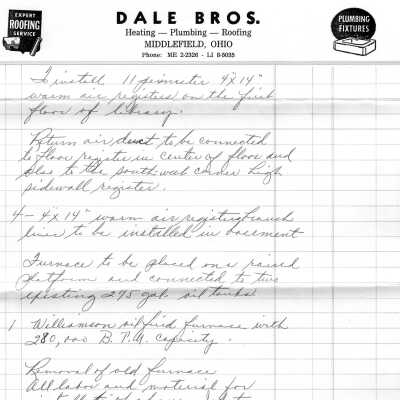 EXPERT
ROOFING
SERVICE
DALE BROS.
Heating — Plumbing — Roofing
MIDDLEFIELD, OHIO
Phone: ME 2-2326 - LI 8-5035
PLUMBING
FIXTURES
To install 11 perimeter 4x14"
warm air registers on the first
floor of library.
Return air duct to be connected
to floor register in center of floor and
also to the south-west corner high
sidewall register.
4 - 4x14" warm air register branch
lines to be installed in basement
Furnace to be placed on a raised
platform and connected to two
existing 275 gal. oil tanks
1 Williamson oil fired furnace with
280,000 B.T.U. capacity.
Removal of old furnace
All labor and material for